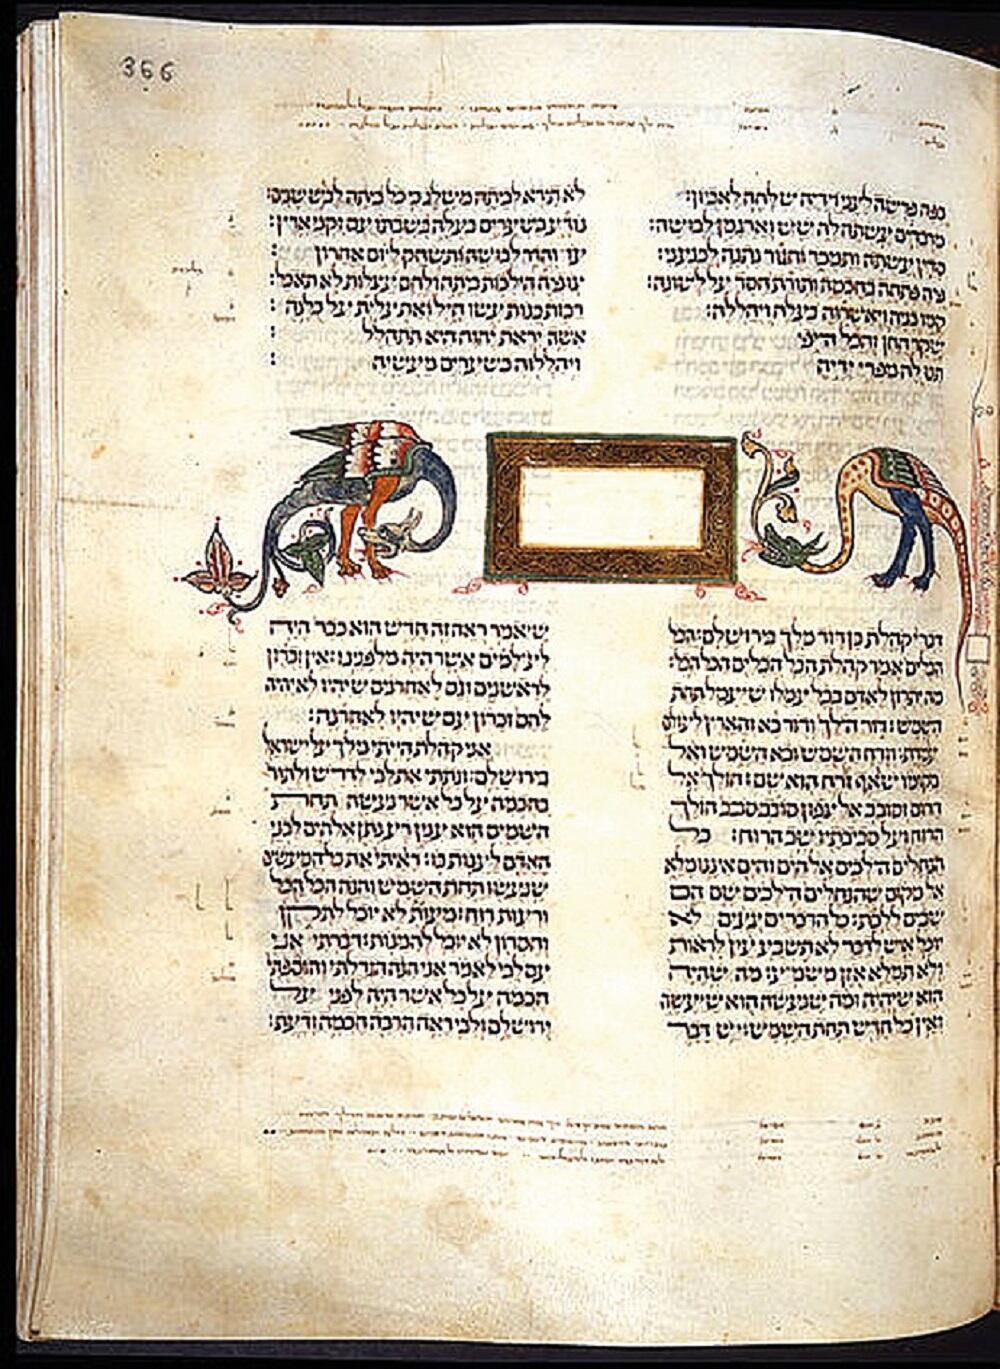 366
כפה פרשה לעני וידיה שלחה לאביון: לא תירא לביתה משלג כי כל ביתה לבש שנים:
מרבדים עשתה לה שש וארגמן לבושה: נודע בשערים בעלה בשבתו עם זקני ארץ:
סדין עשתה ותמכר וחגור נתנה לכנעני: עז והדר לבושה ותשחק ליום אחרון:
פיה פתחה בחכמה ותורת חסד על לשונה: צופיה הילכות ביתה ולחם עצלות לא תאכל:
קמו בניה ויאשרוה בעלה ויהללה: רבות בנות עשו חיל ואת עלית על כלנה:
שקר החן והבל היפי אשה יראת יהוה היא תתהלל:
תנו לה מפרי ידיה ויהללוה בשערים מעשיה:
דברי קהלת בן דוד מלך בירושלם: הבל
הבלים אמר קהלת הבל הבלים הכל הבל:
מה יתרון לאדם בכל עמלו שיעמל תחת
השמש: דור הלך ודור בא והארץ לעולם
עמדת: וזרח השמש ובא השמש ואל
מקומו שואף זרח הוא שם: הולך אל
דרום וסובב אל צפון סובב סבב הולך
הרוח ועל סביבתיו שב הרוח: כל
הנחלים הלכים אל הים והים איננו מלא
אל מקום שהנחלים הלכים שם הם
שבים ללכת: כל הדברים יגעים לא
יוכל איש לדבר לא תשבע עין לראות
ולא תמלא אזן משמע: מה שהיה
הוא שיהיה ומה שנעשה הוא שיעשה
ואין כל חדש תחת השמש: יש דבר
שיאמר ראה זה חדש הוא כבר היה
לעלמים אשר היה מלפננו: אין זכרון
לראשנים וגם לאחרנים שיהיו לא יהיה
להם זכרון עם שיהיו לאחרנה:
אני קהלת הייתי מלך על ישראל
בירושלם: ונתתי את לבי לדרוש ולתור
בחכמה על כל אשר נעשה תחת
השמים הוא ענין רע נתן אלהים לבני
האדם לענות בו: ראיתי את כל המעשים
שנעשו תחת השמש והנה הכל הבל
ורעות רוח: מעות לא יוכל לתקן
וחסרון לא יוכל להמנות: דברתי אני
עם לבי לאמר אני הנה הגדלתי והוספתי
חכמה על כל אשר היה לפני על
ירושלם ולבי ראה הרבה חכמה ודעת: